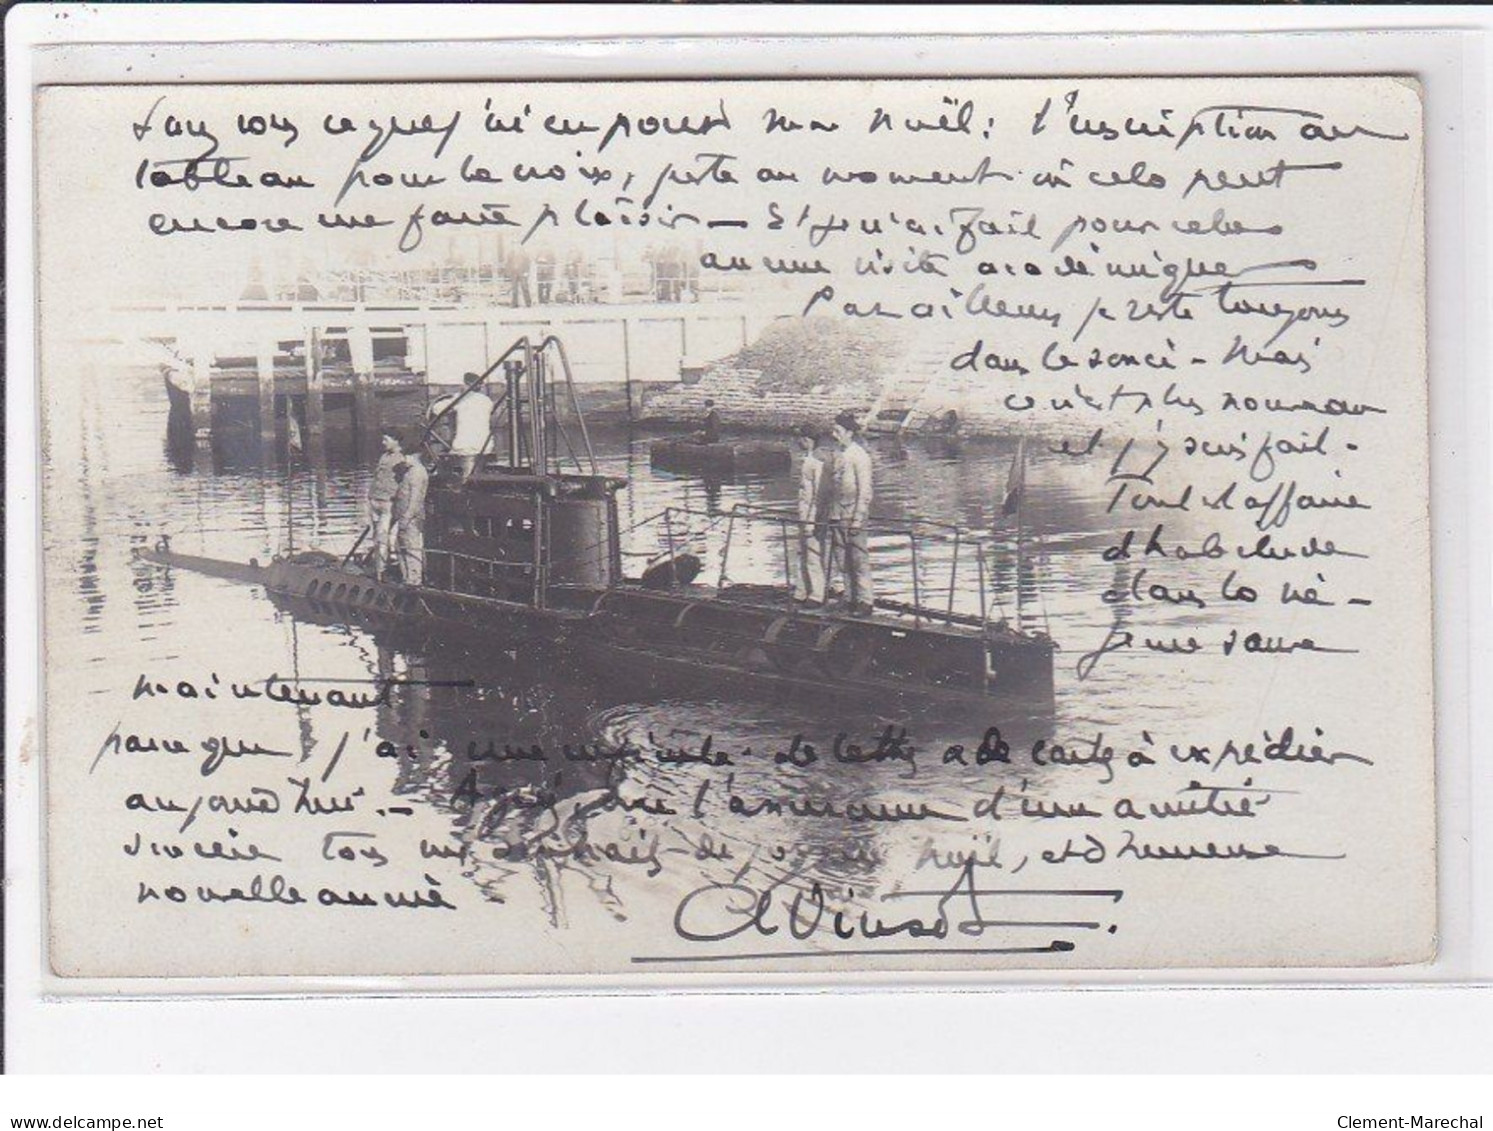 Savez vous ce que j'ai eu pour mon Noël: l'inscription au
tableau pour la croix, juste au moment où cela peut
encore me faire plaisir — Et je n'ai fait pour cela
aucune visite académique
Par ailleurs je reste toujours
dans le souci - Mais
ce n'est plus nouveau
et j'y suis fait -
Tout est affaire
d'habitude
dans la vie -
Je me sauve
maintenant
parce que j'ai une de lettres de cartes à expédier
aujourd'hui. - l'assurance d'une amitié
sincère tous mes souhaits de Noël, et d'heureuse
nouvelle année
delcampe.net
Clement-Marechal